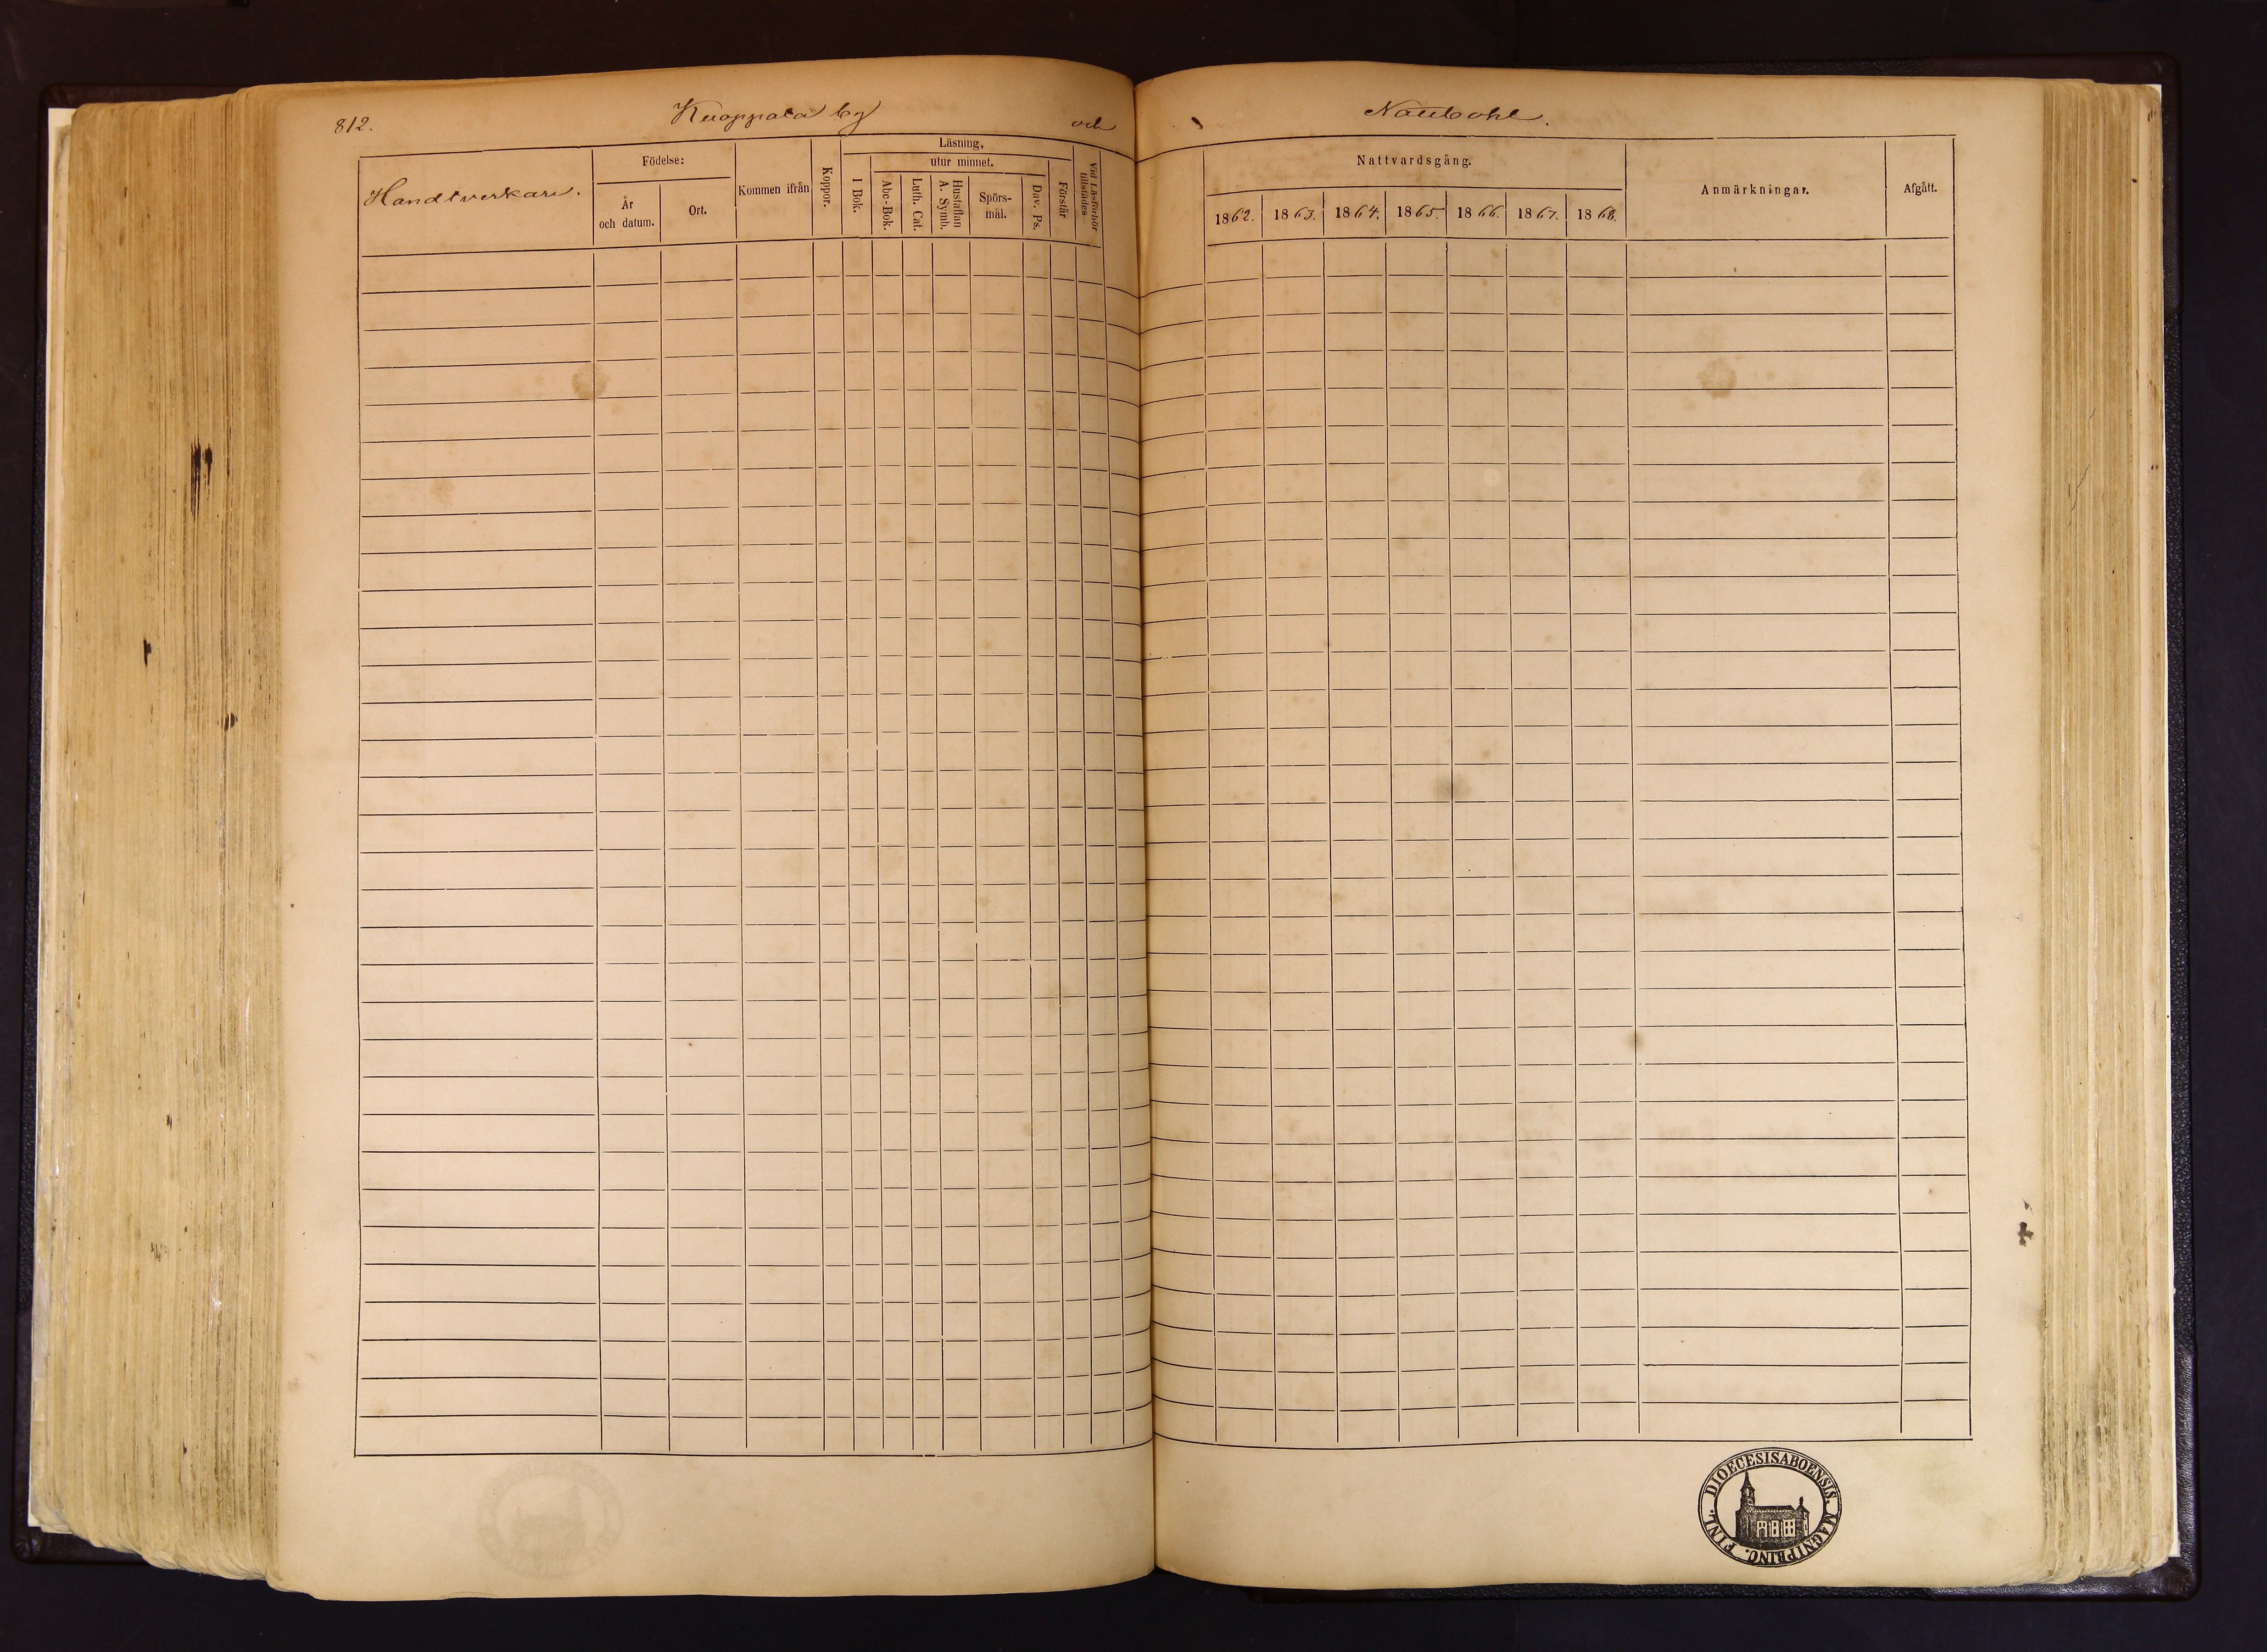 812.
Knoppala by
och
Nautbohl.
Handtverkare.
Födelse:
År
och datum.
Ort.
Kommen ifrån
Koppor.
Läsning,
utur minnet.
I Bok.
Abc-Bok.
Luth. Cat.
Hustaflan
A. Symb.
Spörs-
mål.
Dav. Ps.
Förstår
Vid Läsförhör
tillstädes
Nattvardsgång.
1862. 1863. 1864. 1865. 1866. 1867. 1868.
Anmärkningar.
Afgått.
DIOECESIS ABOENSIS. MAGNI PRINC. FINL.